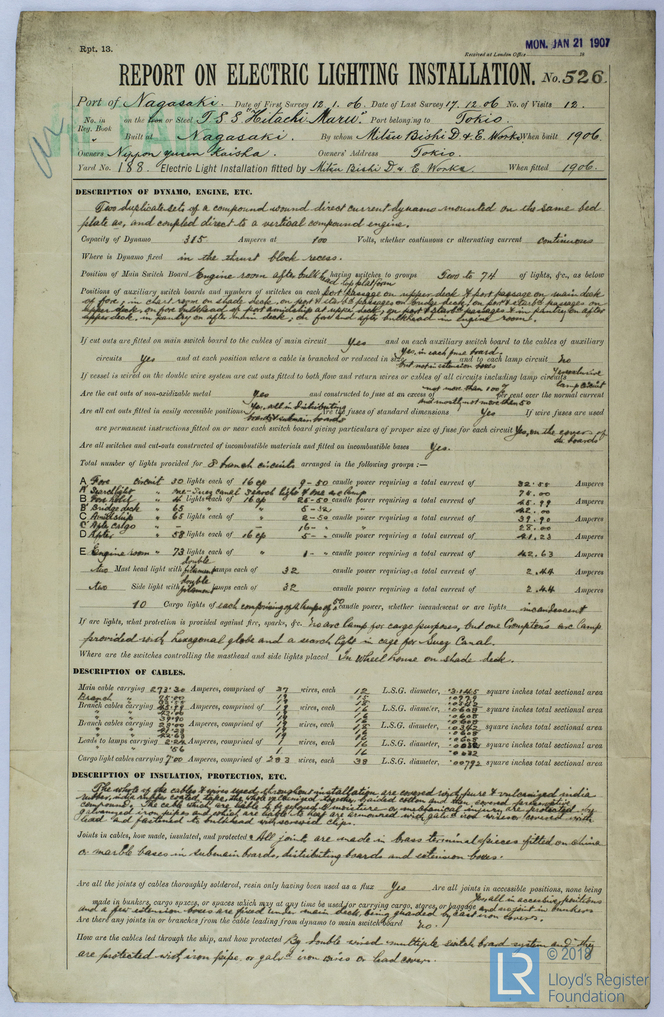 Rpt. 13.
Received at London Office
MON. JAN 21 1907
18
REPORT ON ELECTRIC LIGHTING INSTALLATION. No. 526
Port of Nagasaki. Date of First Survey 12. 1. 06. Date of Last Survey 17. 12. 06 No. of Visits 12.
No. in Reg. Book on the Iron or Steel T S S "Hitachi Maru" Port belonging to Tokio.
Built at Nagasaki. By whom Mitsu Bishi D & E. Works When built 1906.
Owners Nippon Yusen Kaisha. Owners' Address Tokio.
Yard No. 188 Electric Light Installation fitted by Mitsu Bishi D. & E. Works When fitted 1906.
DESCRIPTION OF DYNAMO, ENGINE, ETC.
Two duplicate sets of a compound wound direct current dynamo mounted on the same bed
plate as, and coupled direct to a vertical compound engine.
Capacity of Dynamo 315 Amperes at 100 Volts, whether continuous or alternating current continuous
Where is Dynamo fixed in the thrust block recess.
Position of Main Switch Board Engine room after bulkh having switches to groups Zero to 74 of lights, &c., as below
Positions of auxiliary switch boards and numbers of switches on each port passage on upper deck & port passage on main deck
If cut outs are fitted on main switch board to the cables of main circuit Yes and on each auxiliary switch board to the cables of auxiliary
circuits Yes and at each position where a cable is branched or reduced in size Yes, in each fuse board, but not in extension boxes and to each lamp circuit No
If vessel is wired on the double wire system are cut outs fitted to both flow and return wires or cables of all circuits including lamp circuits
Are the cut outs of non-oxidizable metal Yes and constructed to fuse at an excess of not more than 100% per cent over the normal current
Are all cut outs fitted in easily accessible positions Yes, all in distributing boards & submain boards Are the fuses of standard dimensions Yes If wire fuses are used
are permanent instructions fitted on or near each switch board giving particulars of proper size of fuse for each circuit Yes, on the cover of the boards
Are all switches and cut-outs constructed of incombustible materials and fitted on incombustible bases Yes.
Total number of lights provided for 8 branch circuits arranged in the following groups :—
A Fore circuit 30 lights each of 16 cp 9 - 50 candle power requiring a total current of 32.55 Amperes
A' Searchlight " one Suez Canal Search light & one arc lamp 75.00
B Fore Hotel " 46 lights each of 16 cp 25-50 candle power requiring a total current of 45.99 Amperes
B' Bridge deck " 65 " " 5-32 " 42.00
C Amidship " 65 lights each of " 2-50 candle power requiring a total current of 39.90 Amperes
C' Aft cargo " - - 16 - " 28.00
D After " 58 lights each of 16 cp 5 - " candle power requiring a total current of 41.23 Amperes
E Engine room " 73 lights each of " 1 - " candle power requiring a total current of 42.63 Amperes
two Mast head light with double filament lamps each of 32 candle power requiring a total current of 2.44 Amperes
two Side light with double filament lamps each of 32 candle power requiring a total current of 2.44 Amperes
10 Cargo lights of each comprising of 8 lamps of 50 candle power, whether incandescent or arc lights incandescent
If arc lights, what protection is provided against fire, sparks, &c. No arc lamp for cargo purposes, but one Crompton's arc lamp
provided with hexagonal globe and a search light in cage for Suez Canal.
Where are the switches controlling the masthead and side lights placed In wheel house on shade deck.
DESCRIPTION OF CABLES.
Main cable carrying 273.30 Amperes, comprised of 37 wires, each 12 L.S.G. diameter, .3145 square inches total sectional area
Branch cables carrying Amperes, comprised of 19 wires, each L.S.G. diameter, square inches total sectional area
Branch cables carrying Amperes, comprised of 19 wires, each L.S.G. diameter, square inches total sectional area
Leads to lamps carrying 2.24 Amperes, comprised of wires, each L.S.G. diameter, square inches total sectional area
" .56 1
Cargo light cables carrying 7.00 Amperes, comprised of 283 wires, each 38 L.S.G. diameter, .00792 square inches total sectional area
DESCRIPTION OF INSULATION, PROTECTION, ETC.
The whole of the cables & wires used throughout installation, are covered with pure & vulcanized india
rubber, india rubber coated tape, the whole vulcanized together, braided cotton and then covered preservative
compound. The cable which are liable to be exposed to moisture or mechanical injury are protected by
galvanized iron pipes and which are liable to heat are armoured with galvd iron wires or covered with
lead and fastened to bulkhead with screwed clips.
Joints in cables, how made, insulated, and protected All joint are made in brass terminal pieces fitted on china
or marble bases in submain boards, distributing boards and extension boxes.
Are all the joints of cables thoroughly soldered, resin only having been used as a flux Yes Are all joints in accessible positions, none being
made in bunkers, cargo spaces, or spaces which may at any time be used for carrying cargo, stores, or baggage Yes all in accessible positions and no joint in bunkers
and a few extension boxes are fixed under main deck, being guarded by cast iron covers.
Are there any joints in or branches from the cable leading from dynamo to main switch board No.
How are the cables led through the ship, and how protected By double wired multiple switch board system and they
are protected with iron pipe, or galvd iron wires or lead cover.
© 2018
LR
Lloyd's Register
Foundation